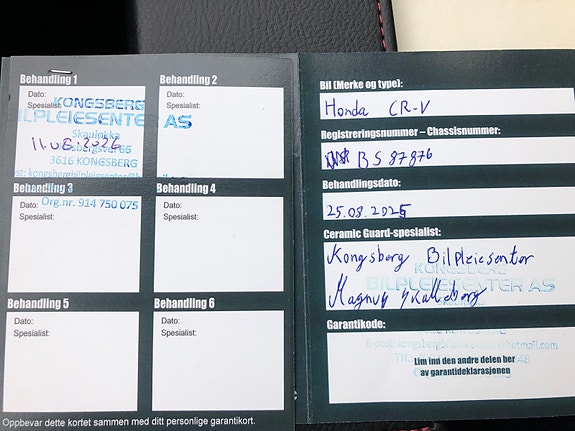 Behandling 1
Dato:
Spesialist:
KONGSBERG
BILPLEIESENTER AS
Skauløkka
11.08.2026
3616 KONGSBERG
Org.nr. 914 750 075
Behandling 2
Dato:
Spesialist:
Behandling 3
Dato:
Spesialist:
Behandling 4
Dato:
Spesialist:
Behandling 5
Dato:
Spesialist:
Behandling 6
Dato:
Spesialist:
Oppbevar dette kortet sammen med ditt personlige garantikort.
Bil (Merke og type):
Honda CR-V
Registreringsnummer – Chassisnummer:
BS 87876
Behandlingsdato:
25.08.2025
Ceramic Guard-spesialist:
Kongsberg Bilpleiesenter
KONGSBERG
BILPLEIESENTER AS
Magnus
Garantikode:
Lim inn den andre delen her
av garantideklarasjonen